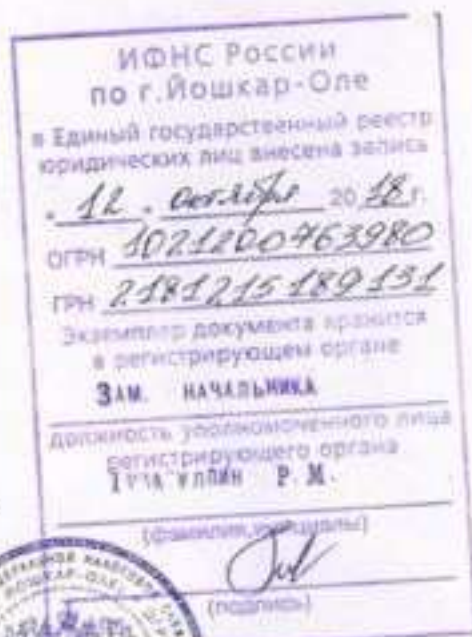 ИФНС России
по г.Йошкар-Оле
в Единый государственный реестр
юридических лиц внесена запись
" 12 " октября 20 18 г.
ОГРН 1021200763980
ГРН 2181215189131
Экземпляр документа хранится
в регистрирующем органе
ЗАМ. НАЧАЛЬНИКА
должность уполномоченного лица
регистрирующего органа
Р. М.
(фамилия, инициалы)
(подпись)
ЙОШКАР-ОЛЕ